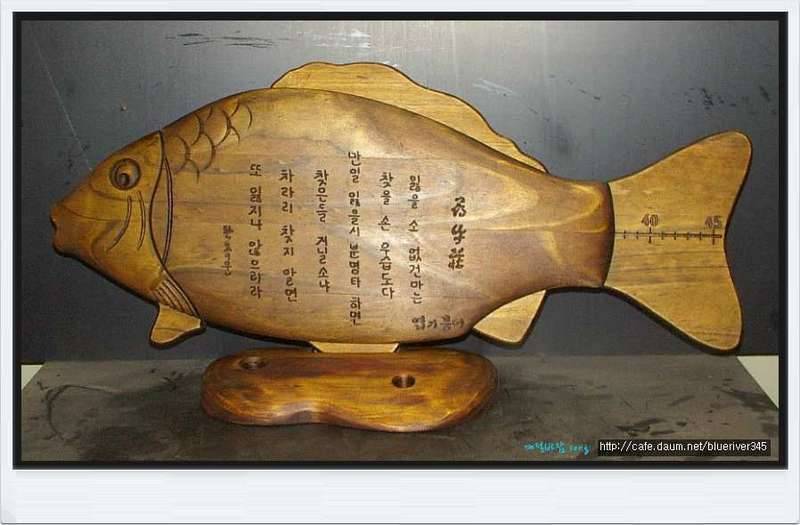 尋牛莊
잃을 소 없건마는
찾을 손 우습도다
만일 잃을시 분명타 하면
찾은들 지닐소냐
차라리 찾지 말면
또 잃지나 않으리라
엽기붕어
40 45
http://cafe.daum.net/blueriver345